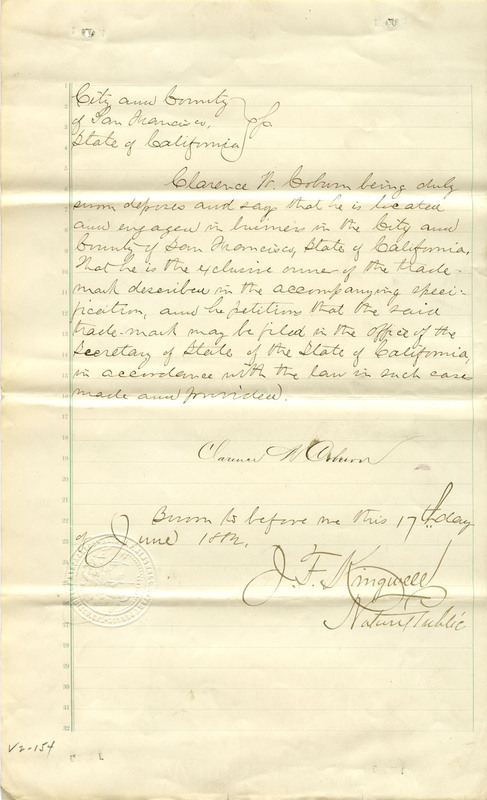 City and County
of San Francisco, } ss
State of California
Clarence W. Coburn being duly
sworn deposes and says that he is located
and engaged in business in the City and
County of San Francisco, State of California,
that he is the exclusive owner of the trade-
mark described in the accompanying speci-
fication, and he petitions that the said
trade-mark may be filed in the office of the
Secretary of State of the State of California,
in accordance with the law in such cases
made and provided.
Clarence W Coburn
Sworn to before me this 17th day
of June 1882.
J. F. Kingwell
Notary Public
V2-154